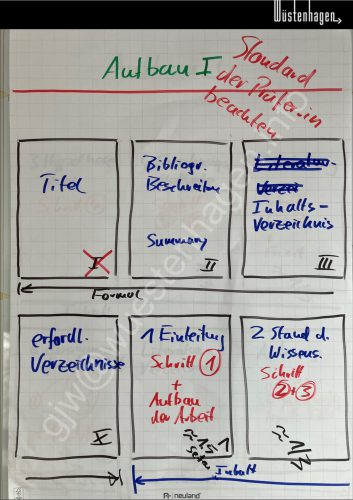 Wüstenhagen
Aufbau I
Standard
der Prüfer:in
beachten
Titel
I
Bibliogr.
Beschreibung
Summary
II
Inhalts-
verzeichnis
III
Formal
erfordl.
Verzeichnisse
X
1 Einleitung
Schritt 1
+
Aufbau
der Arbeit
≈ 1,5
Seiten
1
2 Stand d.
Wissens.
Schritt
2+3
≈ 1/3
Inhalt
neuland
gjw@wuestenhagen.info